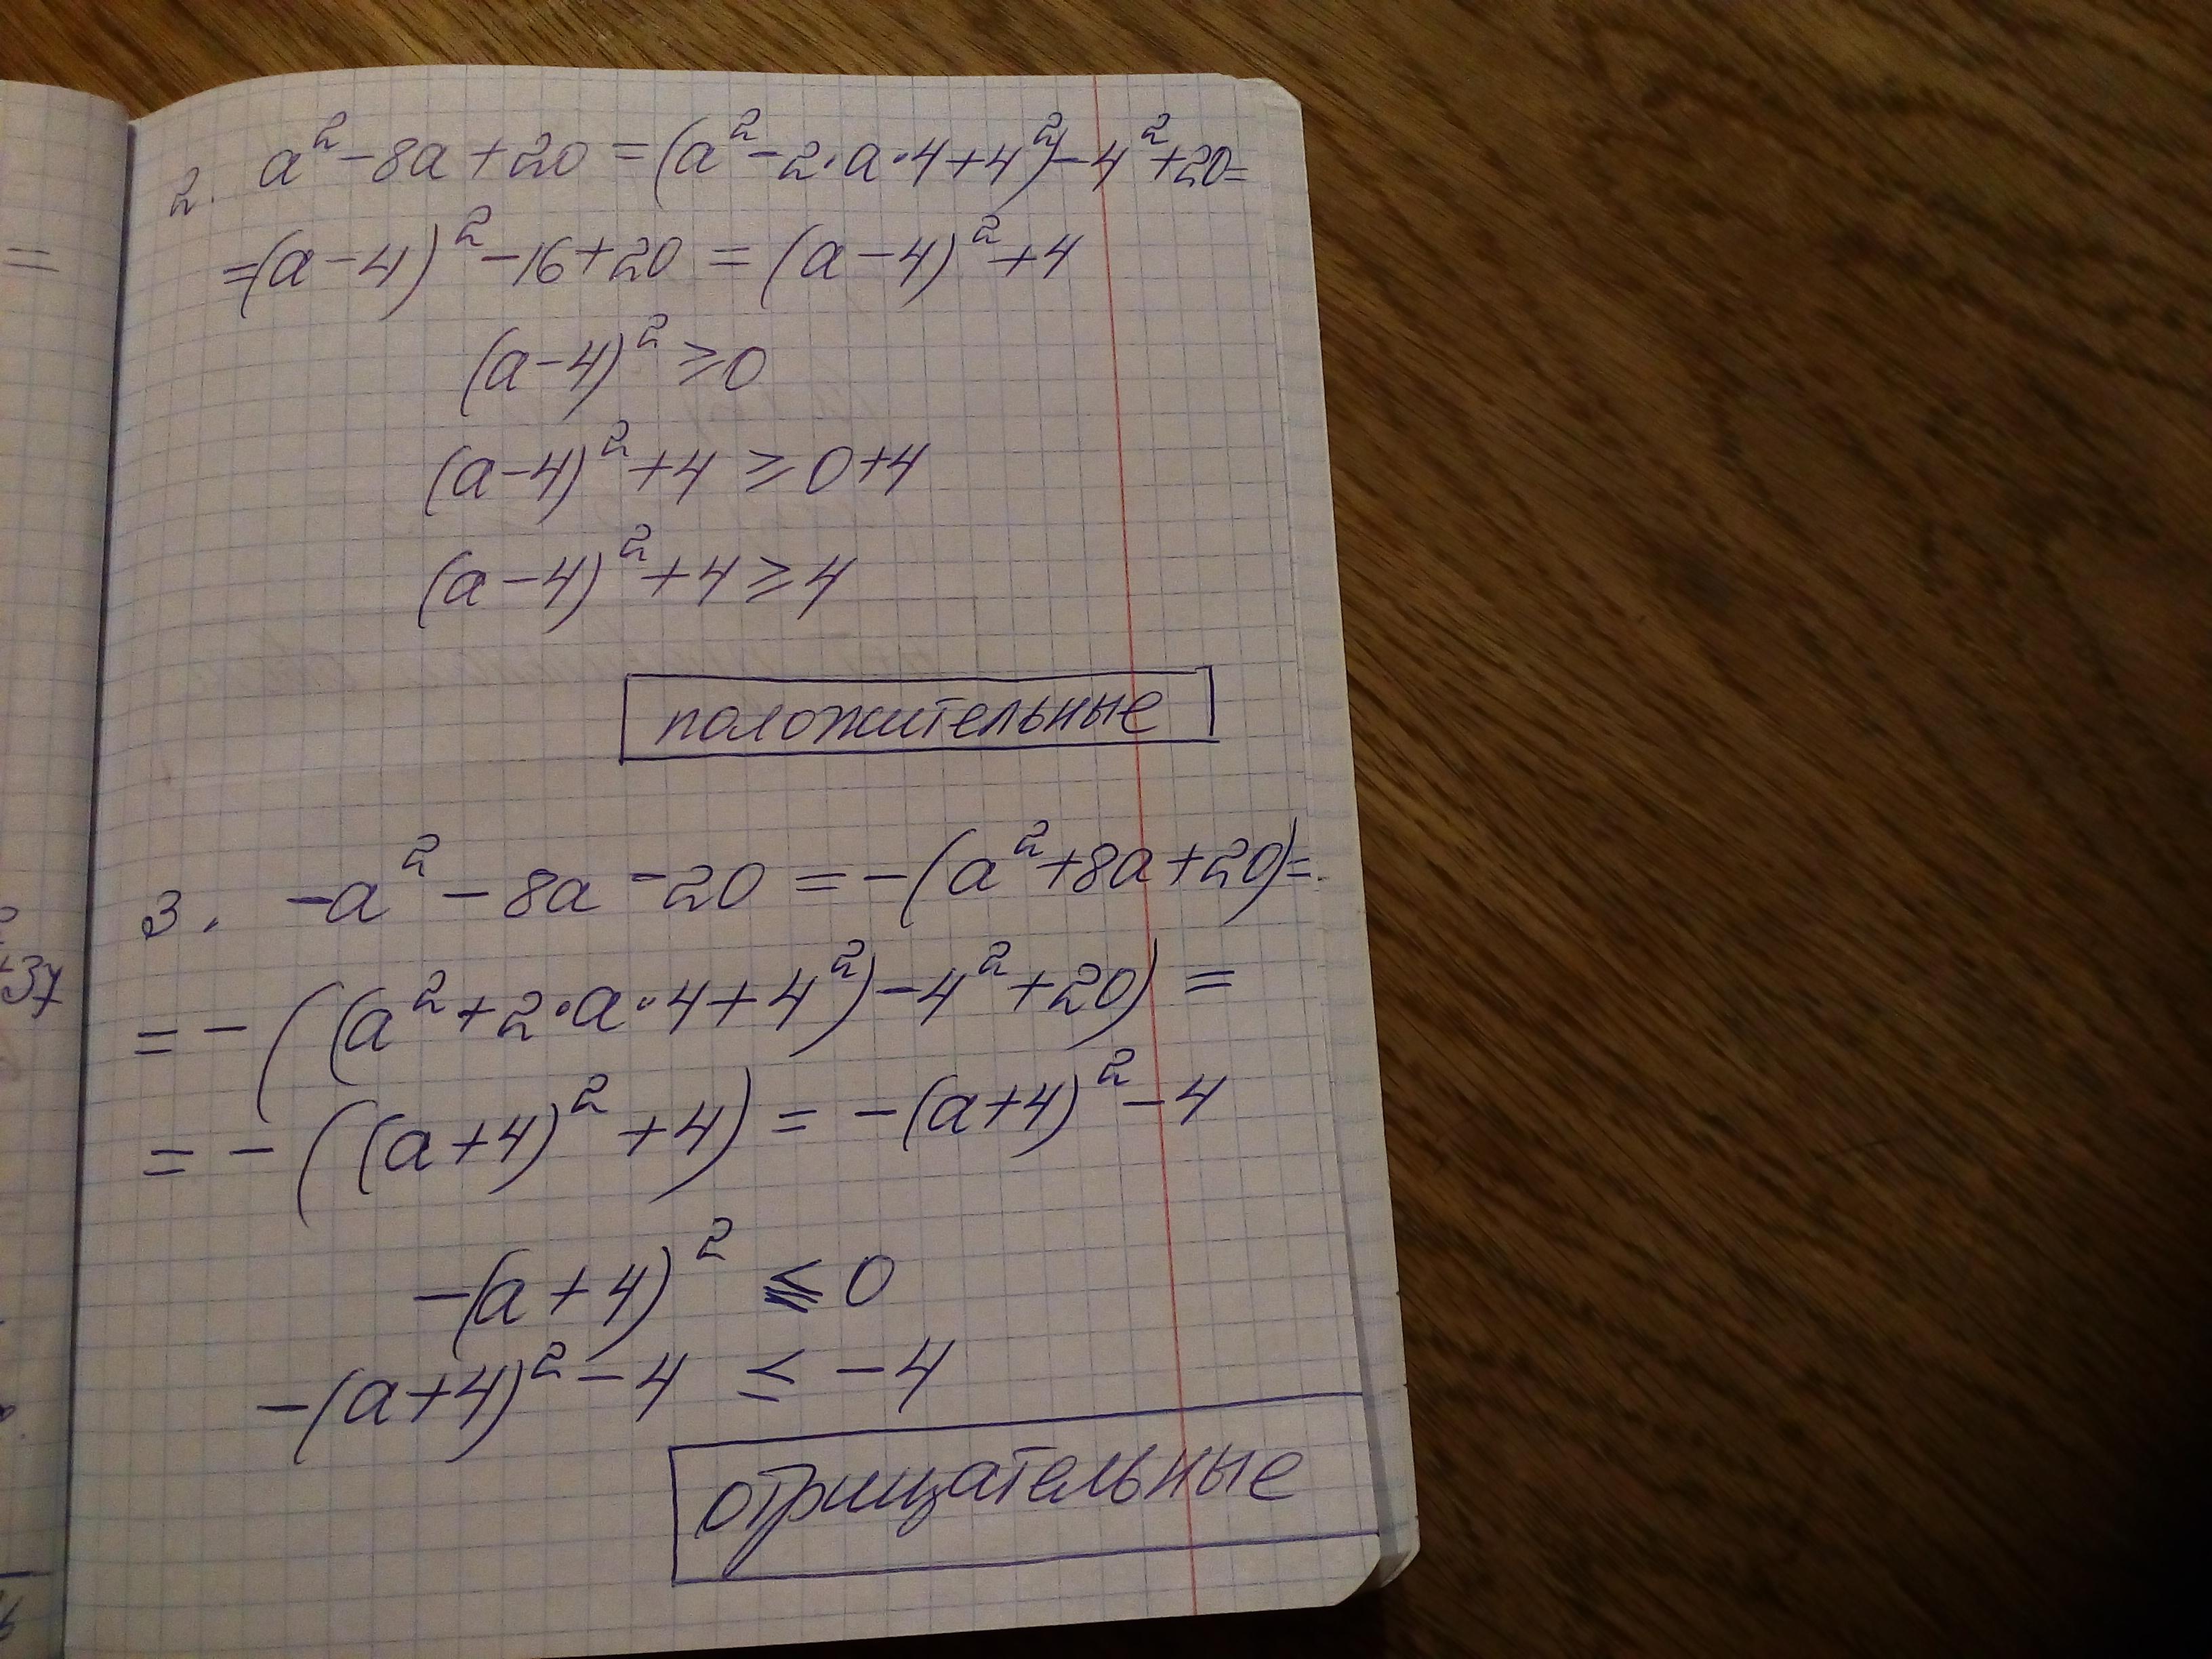 2. a² - 8a + 20 = (a² - 2·a·4 + 4²) - 4² + 20 =
= (a - 4)² - 16 + 20 = (a - 4)² + 4
(a - 4)² ≥ 0
(a - 4)² + 4 ≥ 0 + 4
(a - 4)² + 4 ≥ 4
положительные
3. -a² - 8a - 20 = -(a² + 8a + 20) =
= -((a² + 2·a·4 + 4²) - 4² + 20) =
= -((a + 4)² + 4) = -(a + 4)² - 4
-(a + 4)² ≤ 0
-(a + 4)² - 4 ≤ -4
отрицательные